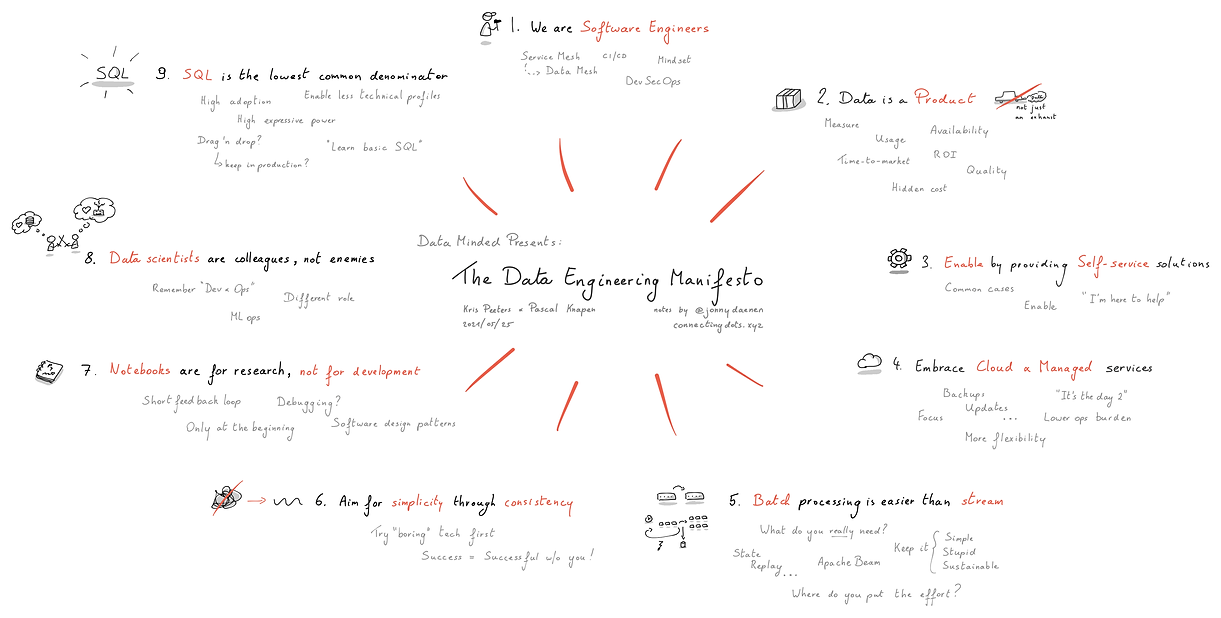 Data Minded Presents:
The Data Engineering Manifesto
Kris Peeters & Pascal Knapen
2021/05/25
notes by @jonnydaenen
connectingdots.xyz
1. We are Software Engineers
Service Mesh
CI/CD
Mindset
Data Mesh
DevSecOps
2. Data is a Product
Data
not just
an exhaust
Measure
Usage
Availability
Time-to-market
ROI
Quality
Hidden cost
3. Enable by providing Self-service solutions
Common cases
"I'm here to help"
Enable
4. Embrace Cloud & Managed services
Backups
"It's the day 2"
Updates
Focus
...
Lower ops burden
More flexibility
5. Batch processing is easier than stream
What do you really need?
Keep it
Simple
Stupid
Sustainable
State
Replay...
Apache Beam
Where do you put the effort?
6. Aim for simplicity through consistency
Try "boring" tech first
Success = Successful w/o you!
7. Notebooks are for research, not for development
Short feedback loop
Debugging?
Only at the beginning
Software design patterns
8. Data scientists are colleagues, not enemies
Remember "Dev & Ops"
Different role
ML ops
SQL
9. SQL is the lowest common denominator
High adoption
Enable less technical profiles
High expressive power
Drag'n drop?
"Learn basic SQL"
keep in production?